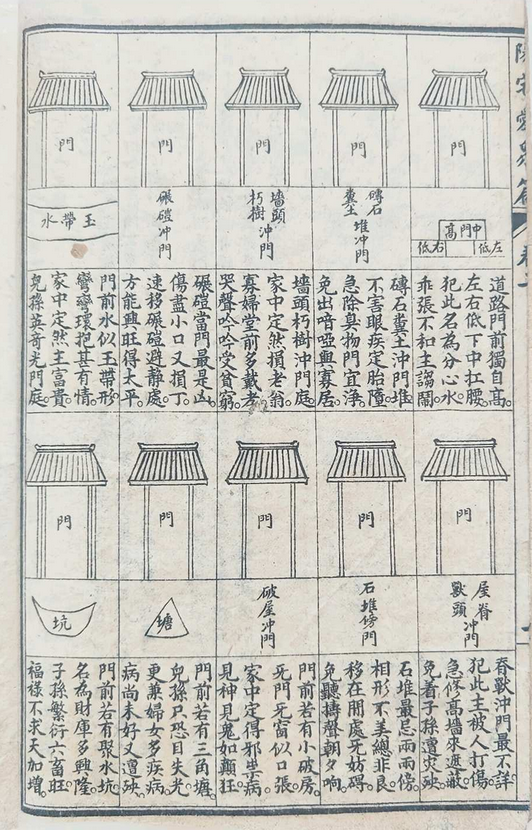 門
中門高
左低
右低
道路門前獨自高
左右低下中扛腰
犯此名為分心水
乖張不和主謅鬧
門
磚石
糞土
堆冲門
磚石糞土冲門堆
不害眼疾定胎墮
急除臭物門宜淨
免出喑啞與寡居
門
墻頭
朽樹
冲門
墻頭朽樹冲門庭
家中定然損老翁
寡婦堂前多戴孝
哭聲吟吟受貧窮
門
碾磑冲門
碾磑當門最是凶
傷盡小口又損丁
速移碾磑避靜處
方能興旺得太平
門
玉帶水
門前水似玉帶形
彎彎環抱甚有情
家中定然主富貴
兒孫英奇光門庭
門
屋脊
獸頭
冲門
脊獸冲門最不詳
犯此主被人打傷
急修高墻來遮蔽
免着子孫遭灾殃
門
石堆傍門
石堆最忌兩兩傍
相形不美總非良
移在閒處無妨碍
免聽擣聲朝夕响
門
破屋冲門
門前若有小破房
死門死窗似口張
家中定得邪祟病
見神見鬼如顛狂
門
塘
門前若有三角塘
兒孫只恐目失光
更兼婦女多疾病
病尚未好又遭殃
門
坑
門前若有聚水坑
名為財庫多興隆
子孫繁衍六畜旺
福祿不求天加增